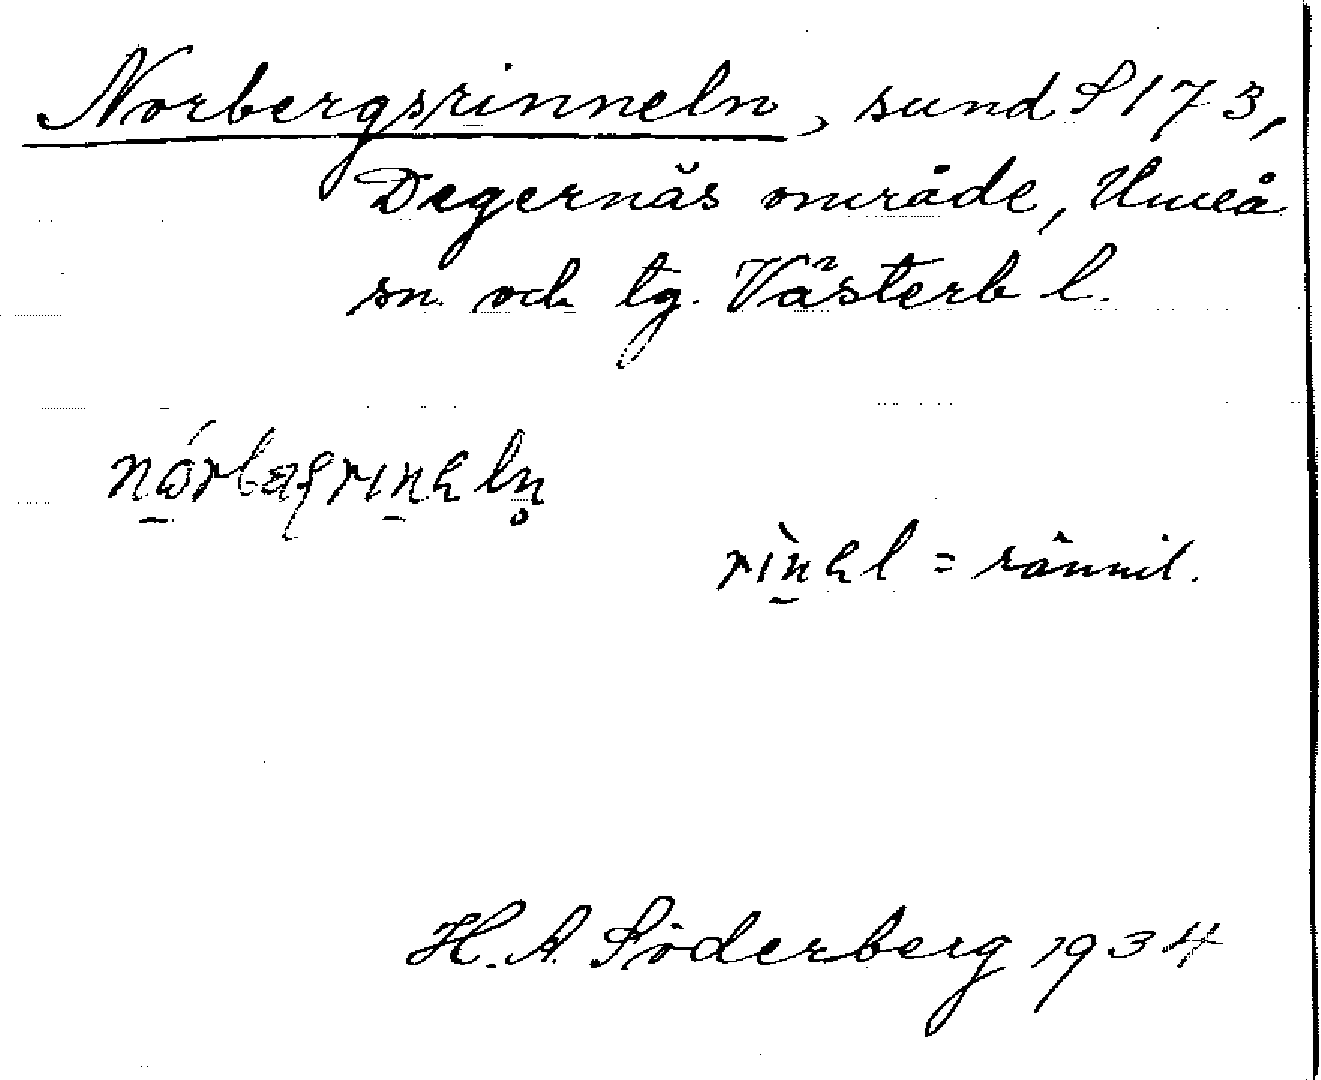 Norbergsrinneln, sund S 173,
Degernäs område, Umeå
sn och tg. Västerb l.
rìnel = rännil.
H. A. Söderberg 1934